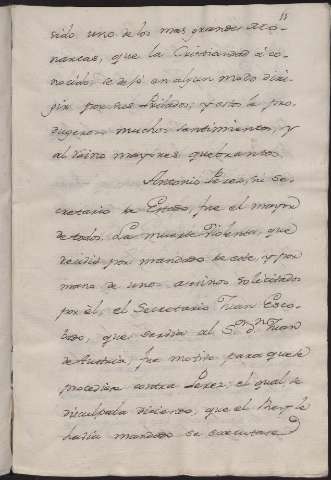 11
sido uno de los mas grandes Mo-
narcas, que la Cristiandad á co-
nocido, se dejó en algun modo diri-
gir por sus Pribados; y estos le pro-
dugeron muchos sentimientos, y
al Reino mayores quebrantos.
Antonio Perez, su Se-
cretario de Estado, fue el mayor
de todos. La muerte violenta, que
recivió por mandado de este, y por
mano de unos asesinos solicitados
por él, el Secretario Juan Esco-
bedo, que servia al S.r d.n Juan
de Austria, fue motivo para que se
procediera contra Perez; el qual, se
disculpaba diciendo, que el Rey le
havia mandado se executase